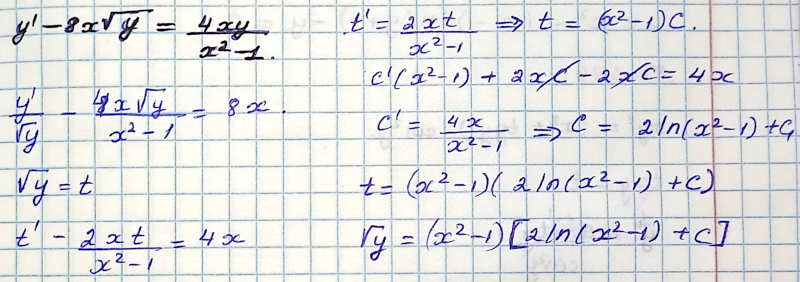 y' - 8x√y = 4xy/(x²-1).
y'/√y - 4x√y/(x²-1) = 8x.
√y = t
t' - 2xt/(x²-1) = 4x
t' = 2xt/(x²-1) ⇒ t = (x²-1)C.
C'(x²-1) + 2xC - 2xC = 4x
C' = 4x/(x²-1) ⇒ C = 2ln(x²-1) + C₁
t = (x²-1)(2ln(x²-1) + C)
√y = (x²-1)[2ln(x²-1) + C]